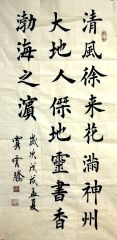 清風徐来花滿神州
大地人傑地靈書香
渤海之濱
歲次戊戌孟夏
霄騰